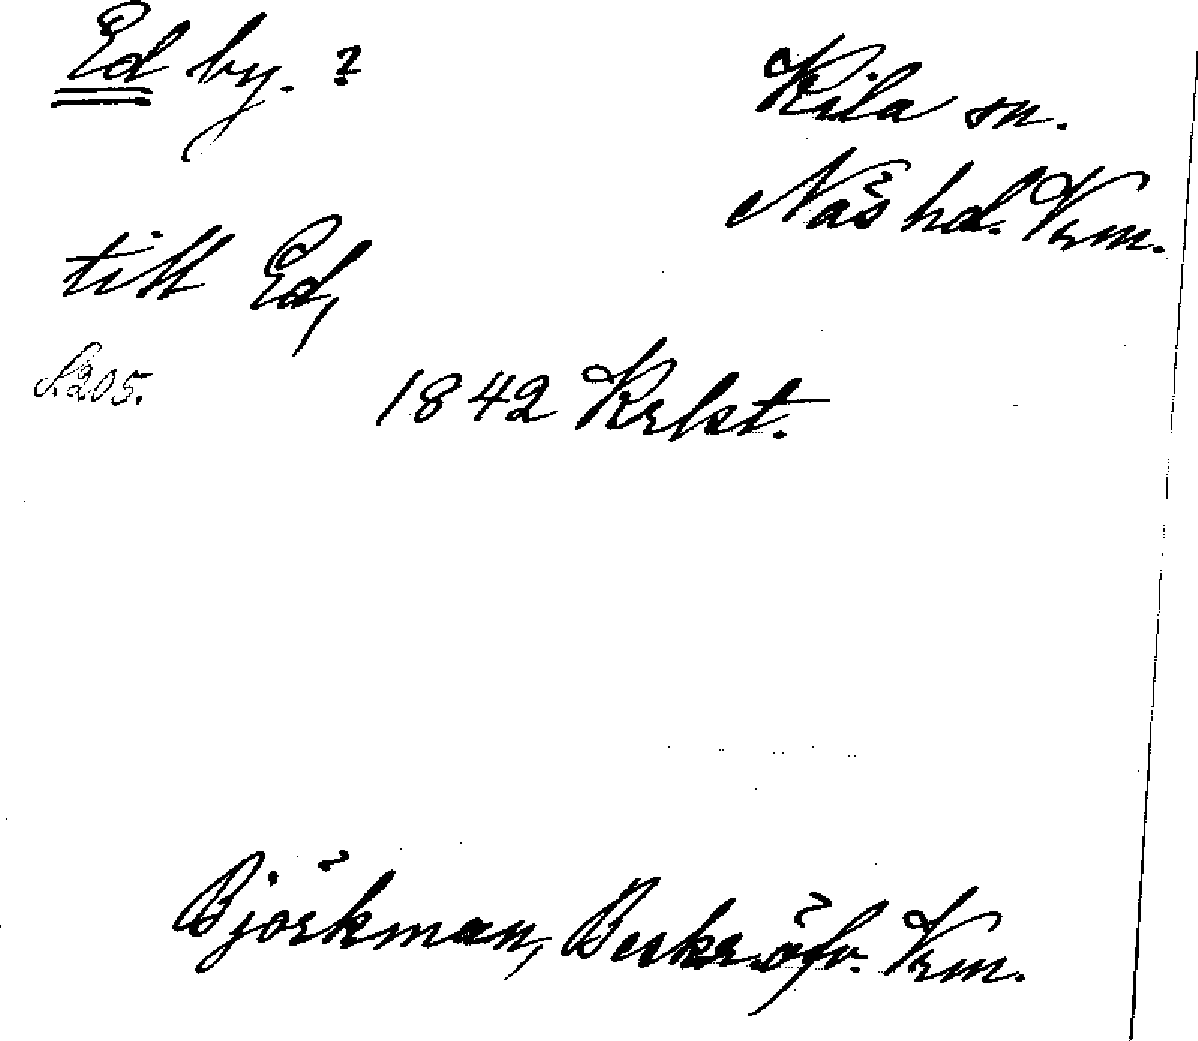 Ed by. ?
Kila sn.
Näs hd. Vrm.
till Ed,
S. 205.
1842 Krlst.
Björkman, Beskr. öfv. Vrm.